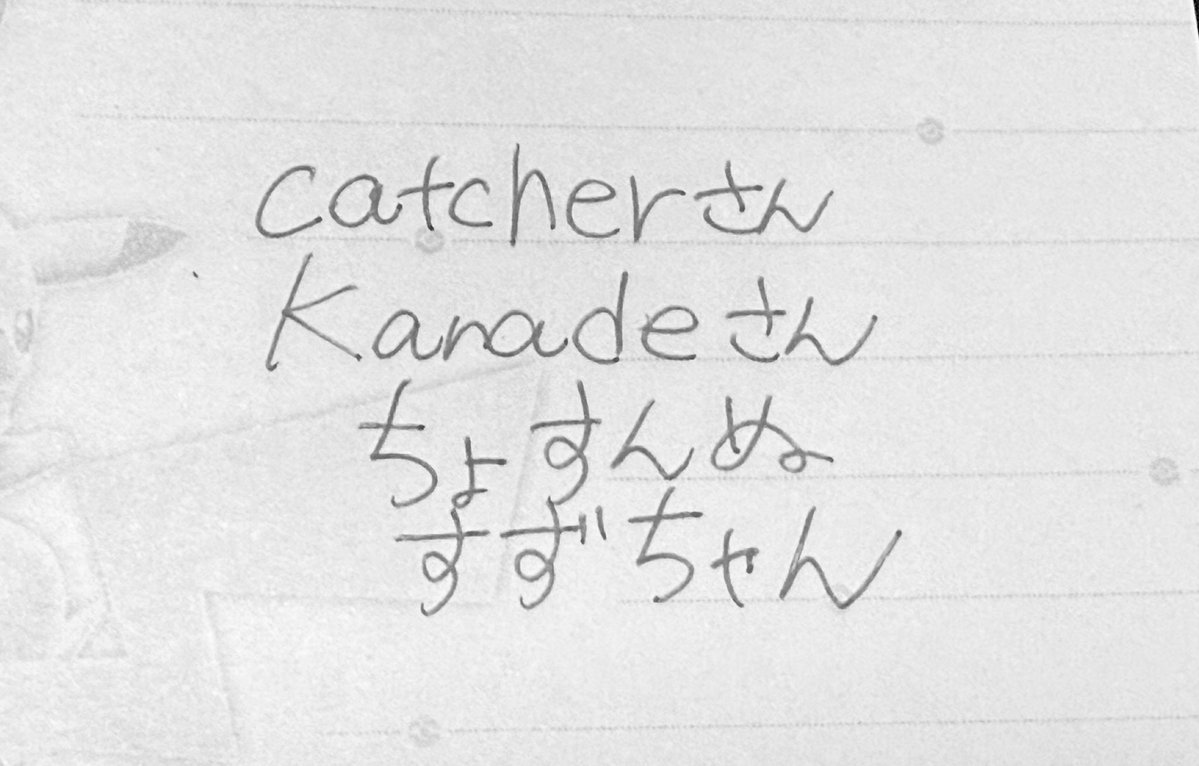 catcherさん
Kanadeさん
ちょすんぬ
すずちゃん